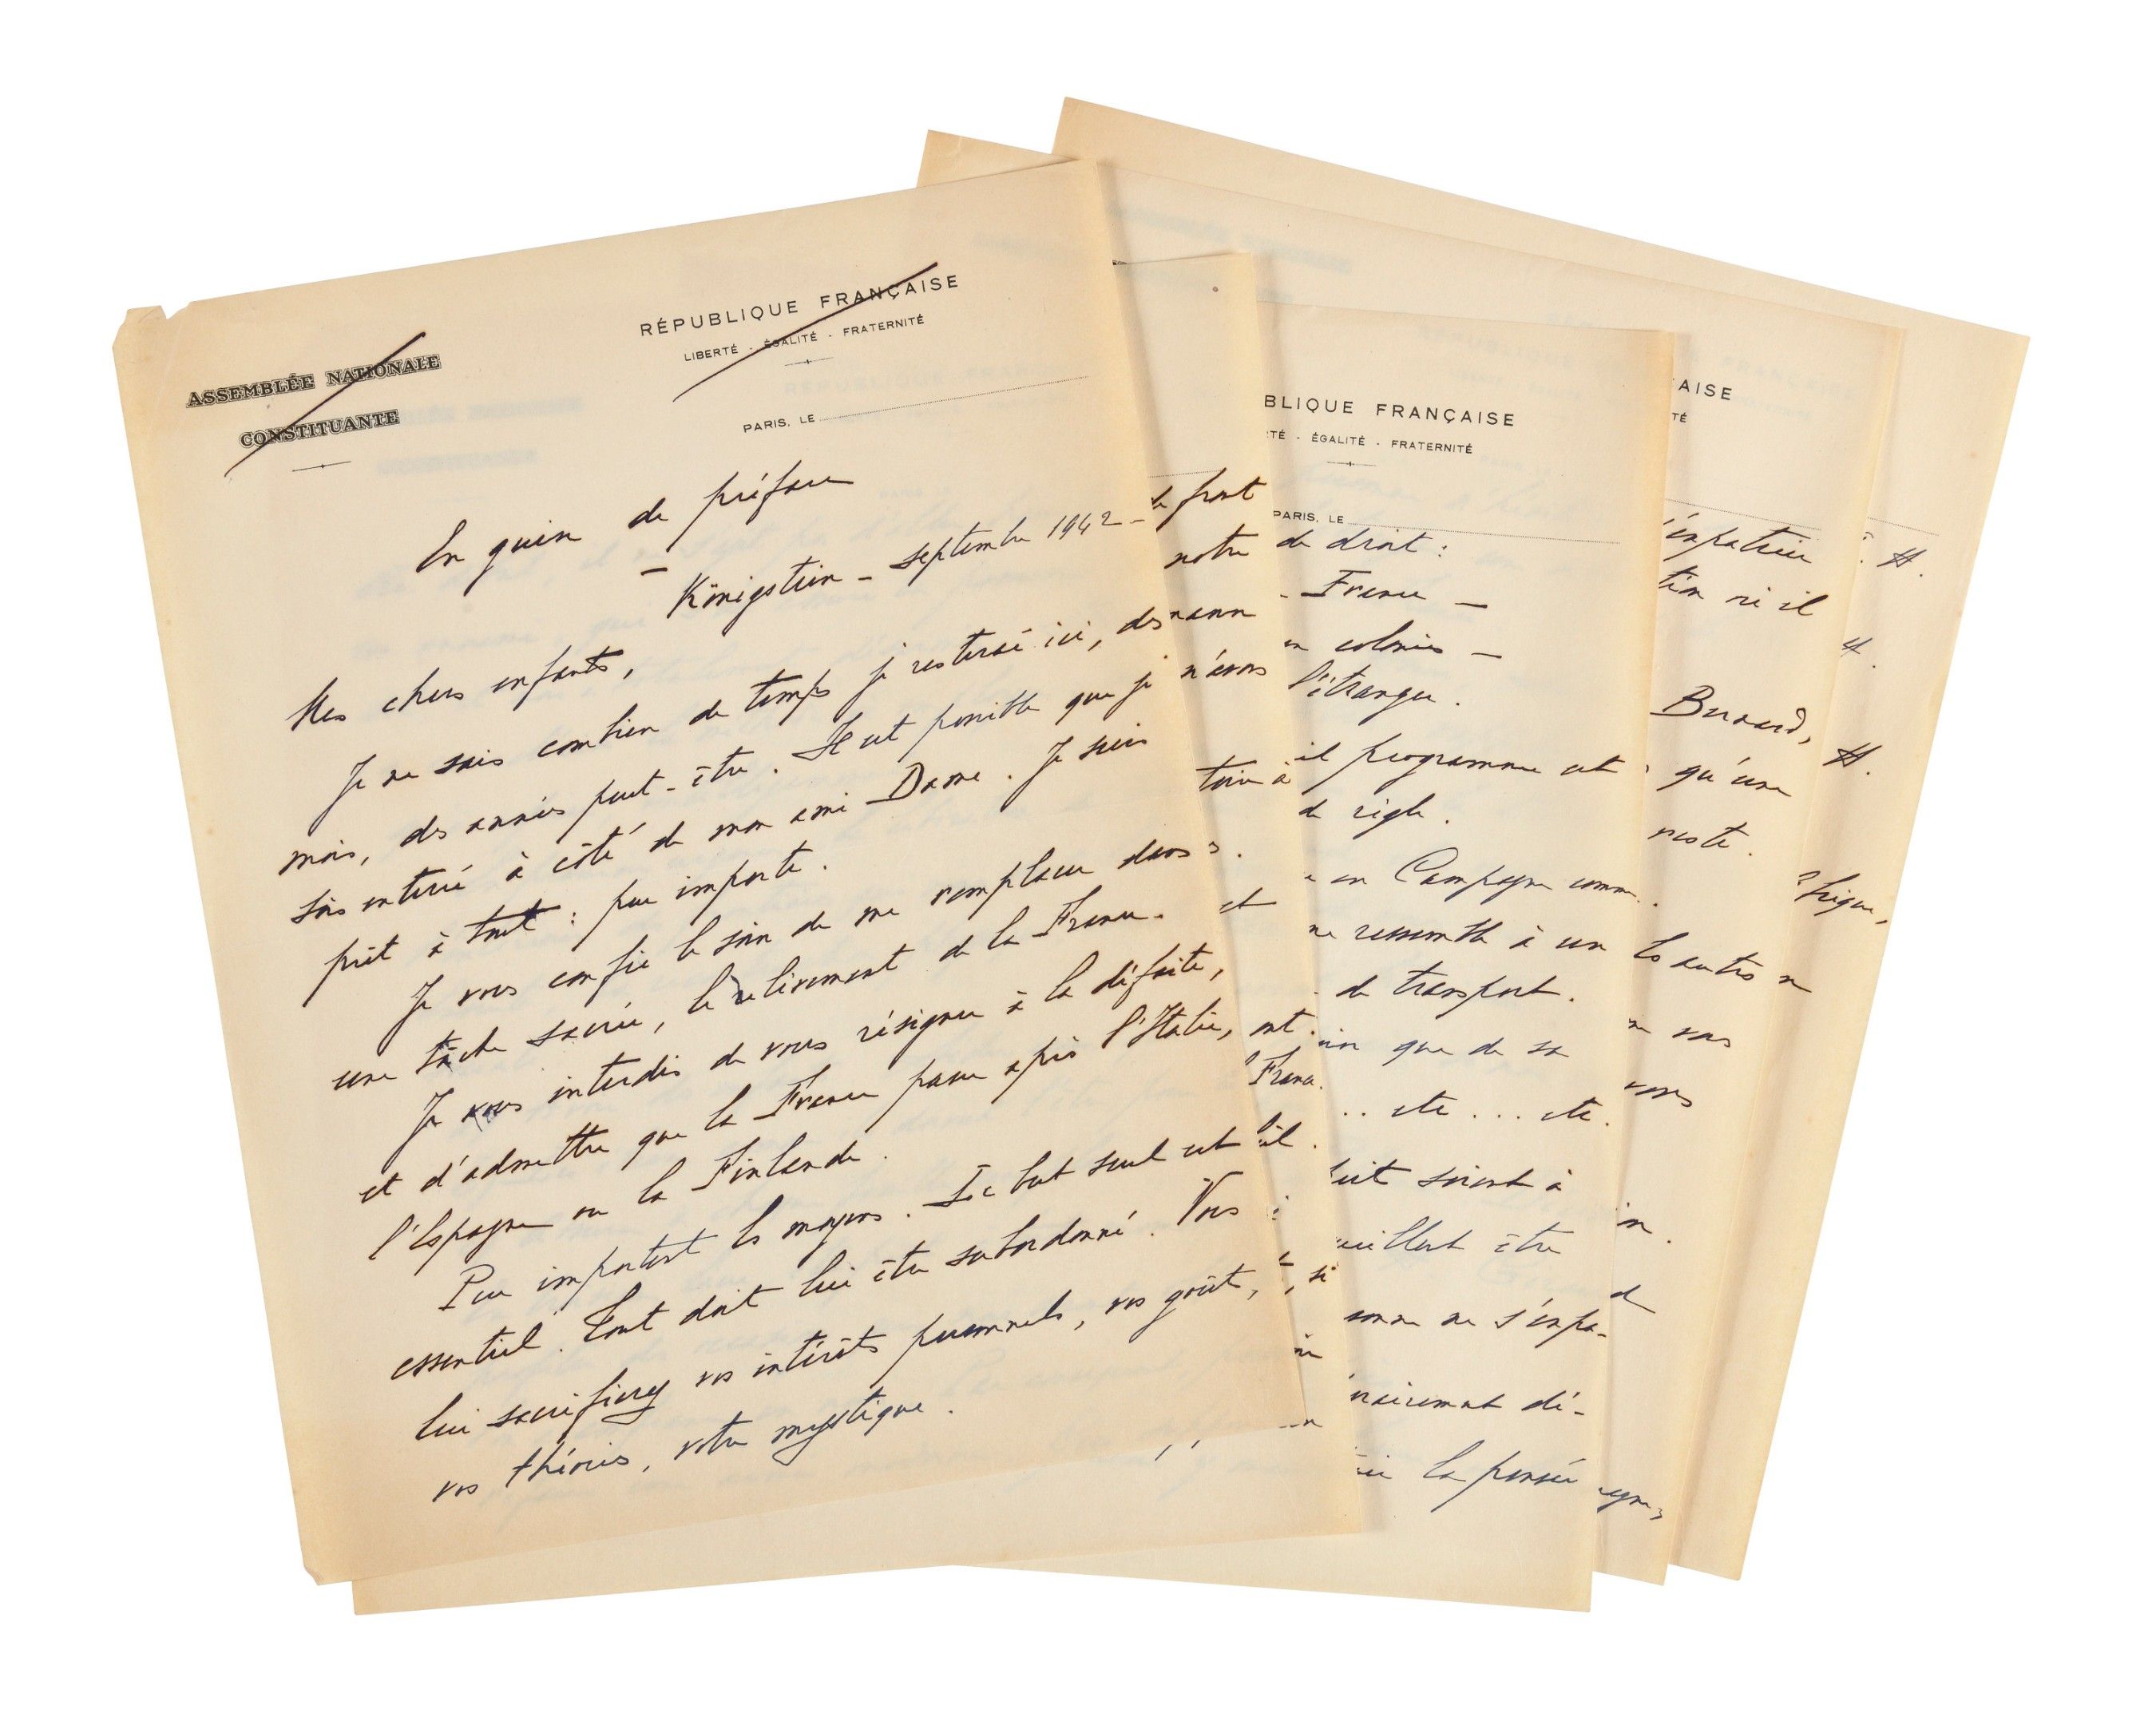 ASSEMBLÉE NATIONALE
CONSTITUANTE
RÉPUBLIQUE FRANÇAISE
LIBERTÉ - ÉGALITÉ - FRATERNITÉ
PARIS, LE
En guise de préface
Königstein - septembre 1942 -
Mes chers enfants,
Je ne sais combien de temps je resterai ici, des
mois, des années peut-être. Il est possible que je
sois enterré à côté de mon ami Dame. Je suis
prêt à tout : peu importe.
Je vous confie le soin de me remplacer dans
une tâche sacrée, le relèvement de la France.
Je vous interdis de vous résigner à la défaite,
et d'admettre que la France passe après l'Italie,
l'Espagne ou la Finlande.
Peu importent les moyens. Le but seul est
essentiel. Tout doit lui être subordonné. Vous
lui sacrifierez vos intérêts personnels, vos goûts,
vos théories, votre mystique.
front
notre
n'avons
et
BLIQUE FRANÇAISE
TÉ - ÉGALITÉ - FRATERNITÉ
PARIS, LE
de droit :
- France -
colonies -
l'étranger.
programme est
de règle.
en Campagne comme
ne ressemble à un
de transport.
que de sa
.. etc ... etc.
soient à
être
ne s'expa-
dé-
la pensée
AISE
TÉ
s'expatrier
si il
Bernard,
qu'une
reste.
les autres
vous
H.
4.
H.